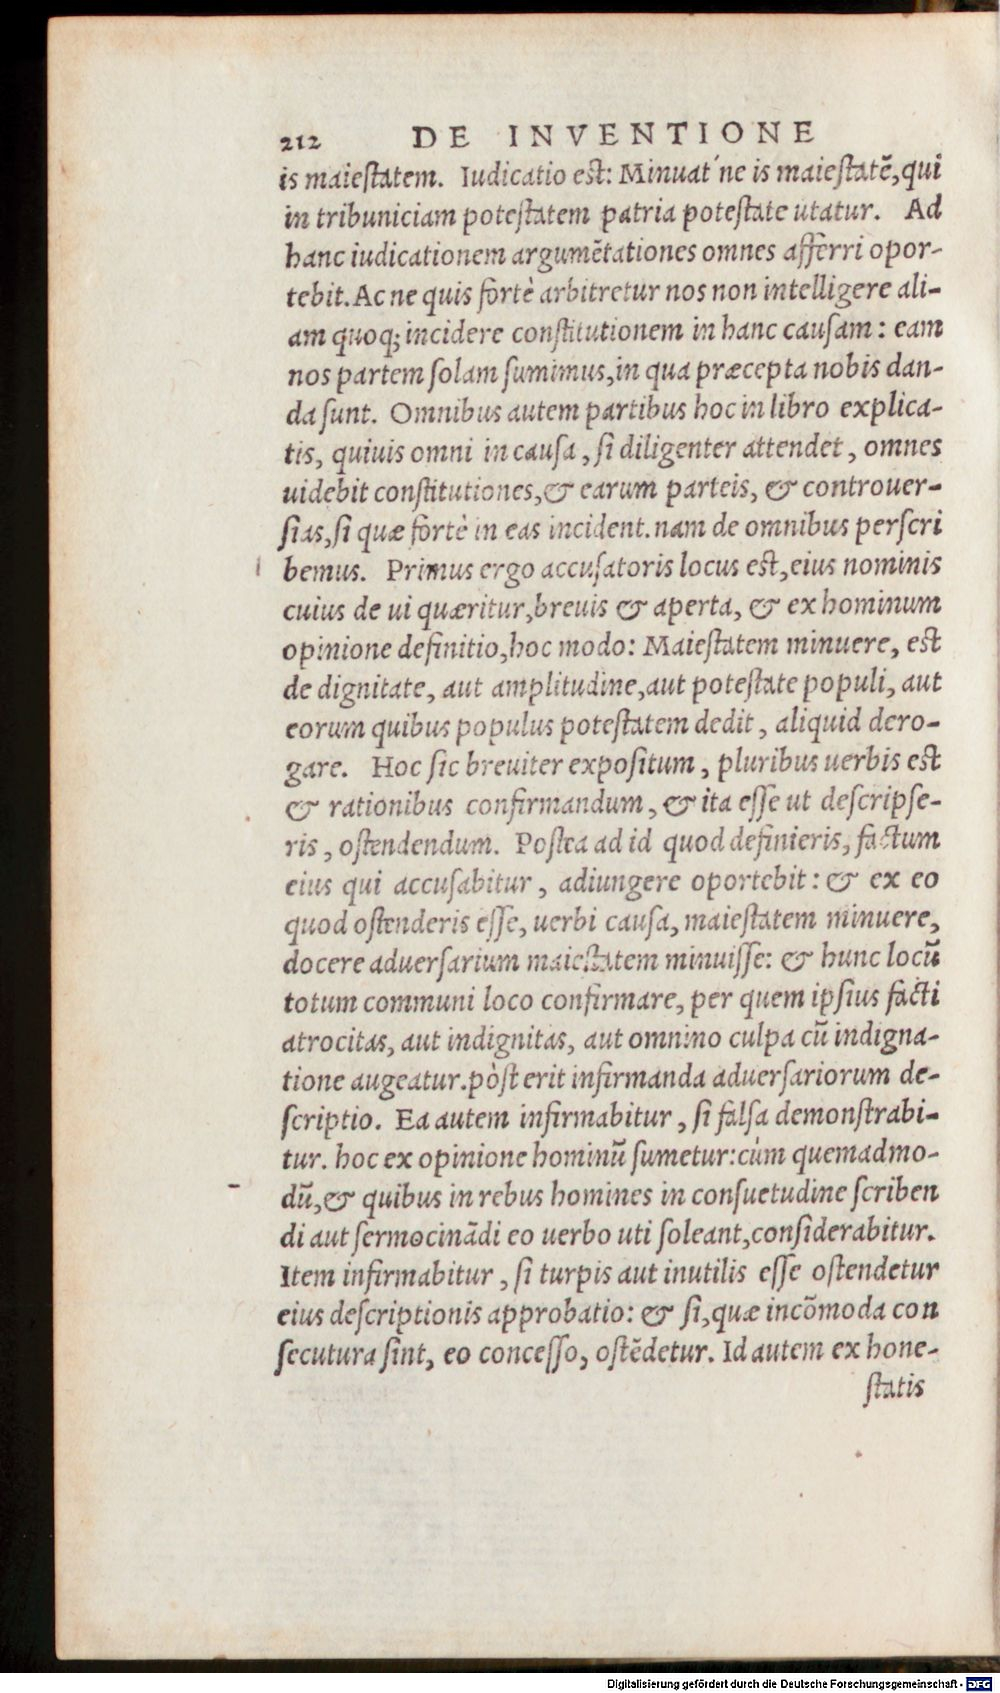 212 DE INVENTIONE
is maieſtatem. Iudicatio est: Minuat´ne is maieſtatē, qui
in tribuniciam poteſtatem patria poteſtate utatur. Ad
hanc iudicationem argumētationes omnes afferri opor-
tebit. Ac ne quis fortè arbitretur nos non intelligere ali-
am quoq; incidere conſtitutionem in hanc cauſam: eam
nos partem ſolam ſumimus, in qua præcepta nobis dan-
da ſunt. Omnibus autem partibus hoc in libro explica-
tis, quiuis omni in cauſa, ſi diligenter attendet, omnes
uidebit conſtitutiones, & earum parteis, & controuer-
ſias, ſi quæ fortè in eas incident. nam de omnibus perſcri
bemus. Primus ergo accuſatoris locus est, eius nominis
cuius de ui quæritur, breuis & aperta, & ex hominum
opinione definitio, hoc modo: Maieſtatem minuere, est
de dignitate, aut amplitudine, aut poteſtate populi, aut
eorum quibus populus poteſtatem dedit, aliquid dero-
gare. Hoc ſic breuiter expoſitum, pluribus uerbis est
& rationibus confirmandum, & ita eſſe ut deſcripſe-
ris, oſtendendum. Poſtea ad id quod definieris, factum
eius qui accuſabitur, adiungere oportebit: & ex eo
quod oſtenderis eſſe, uerbi cauſa, maieſtatem minuere,
docere aduerſarium maieſtatem minuiſſe: & hunc locū
totum communi loco confirmare, per quem ipſius facti
atrocitas, aut indignitas, aut omnino culpa cū indigna-
tione augeatur. pòſt erit infirmanda aduerſariorum de-
ſcriptio. Ea autem infirmabitur, ſi falſa demonſtrabi-
tur. hoc ex opinione hominū ſumetur: cùm quemadmo-
dū, & quibus in rebus homines in conſuetudine ſcriben
di aut ſermocinādi eo uerbo uti ſoleant, conſiderabitur.
Item infirmabitur, ſi turpis aut inutilis eſſe oſtendetur
eius deſcriptionis approbatio: & ſi, quæ incōmoda con
ſecutura ſint, eo conceſſo, oſtēdetur. Id autem ex hone-
ſtatis
Digitalisierung gefördert durch die Deutsche Forschungsgemeinschaft - DFG